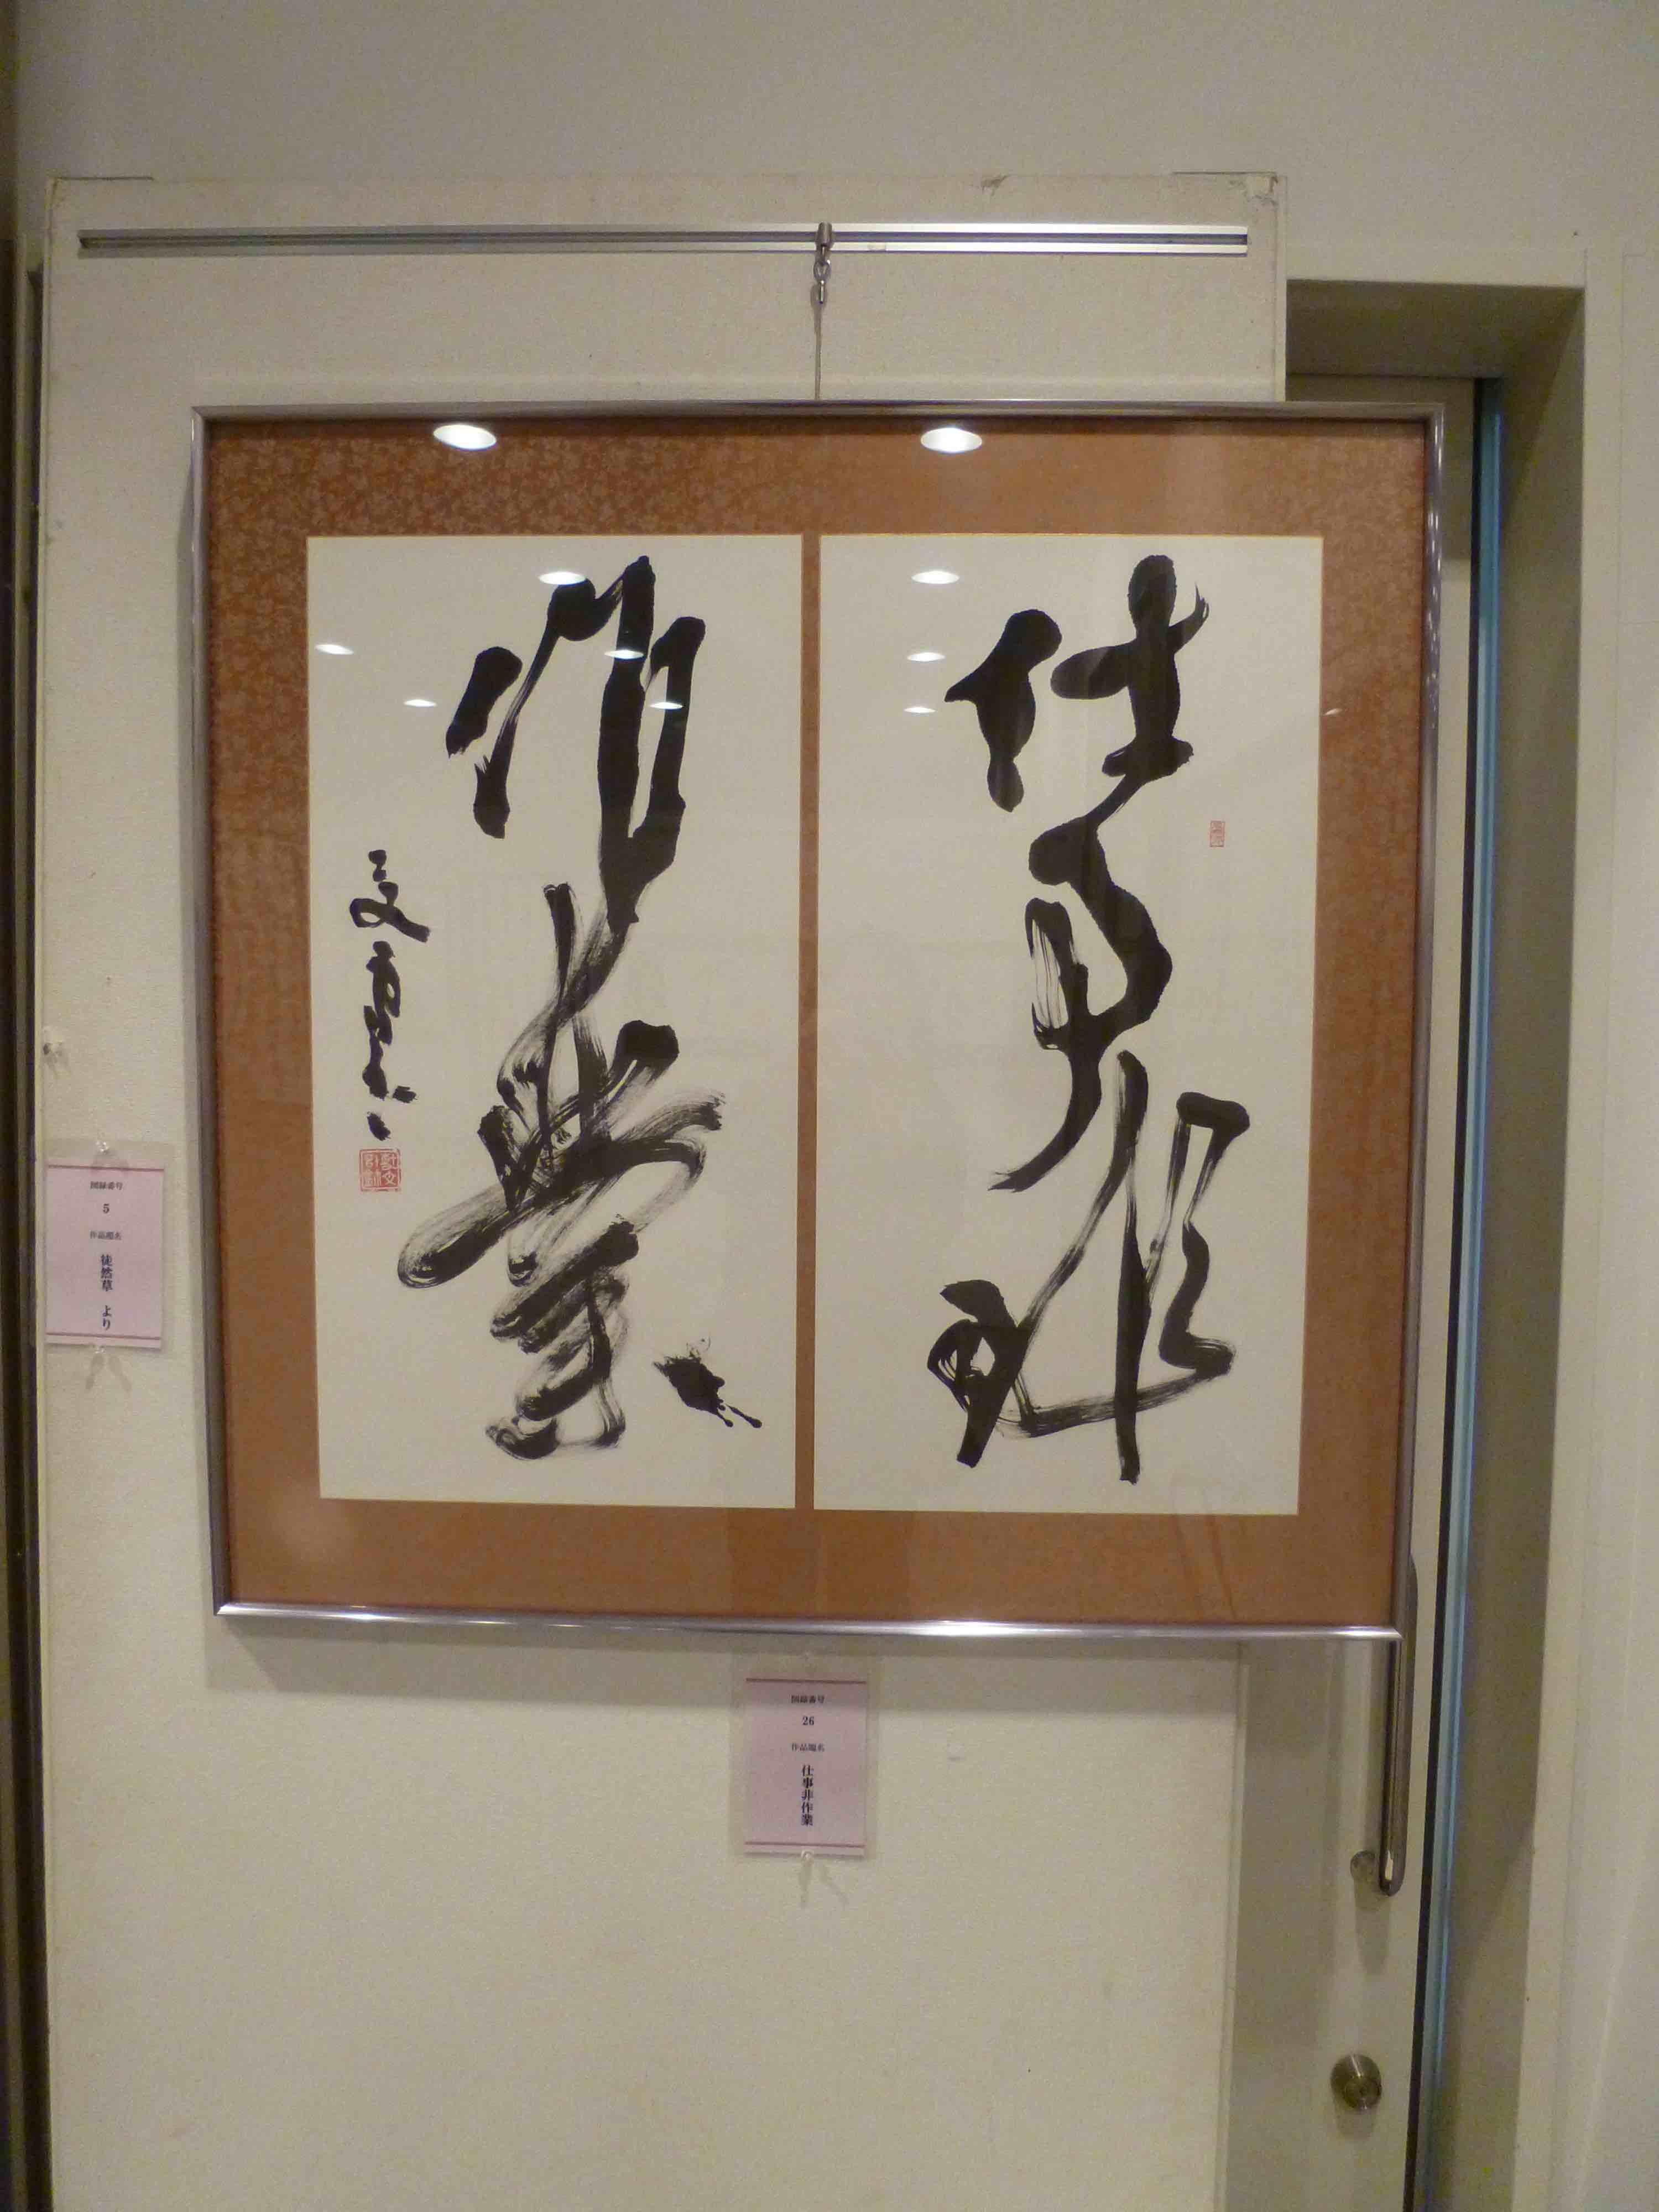 仕事非
作業
図録番号
5
作品題名
徒然草 より
図録番号
26
作品題名
仕事非作業